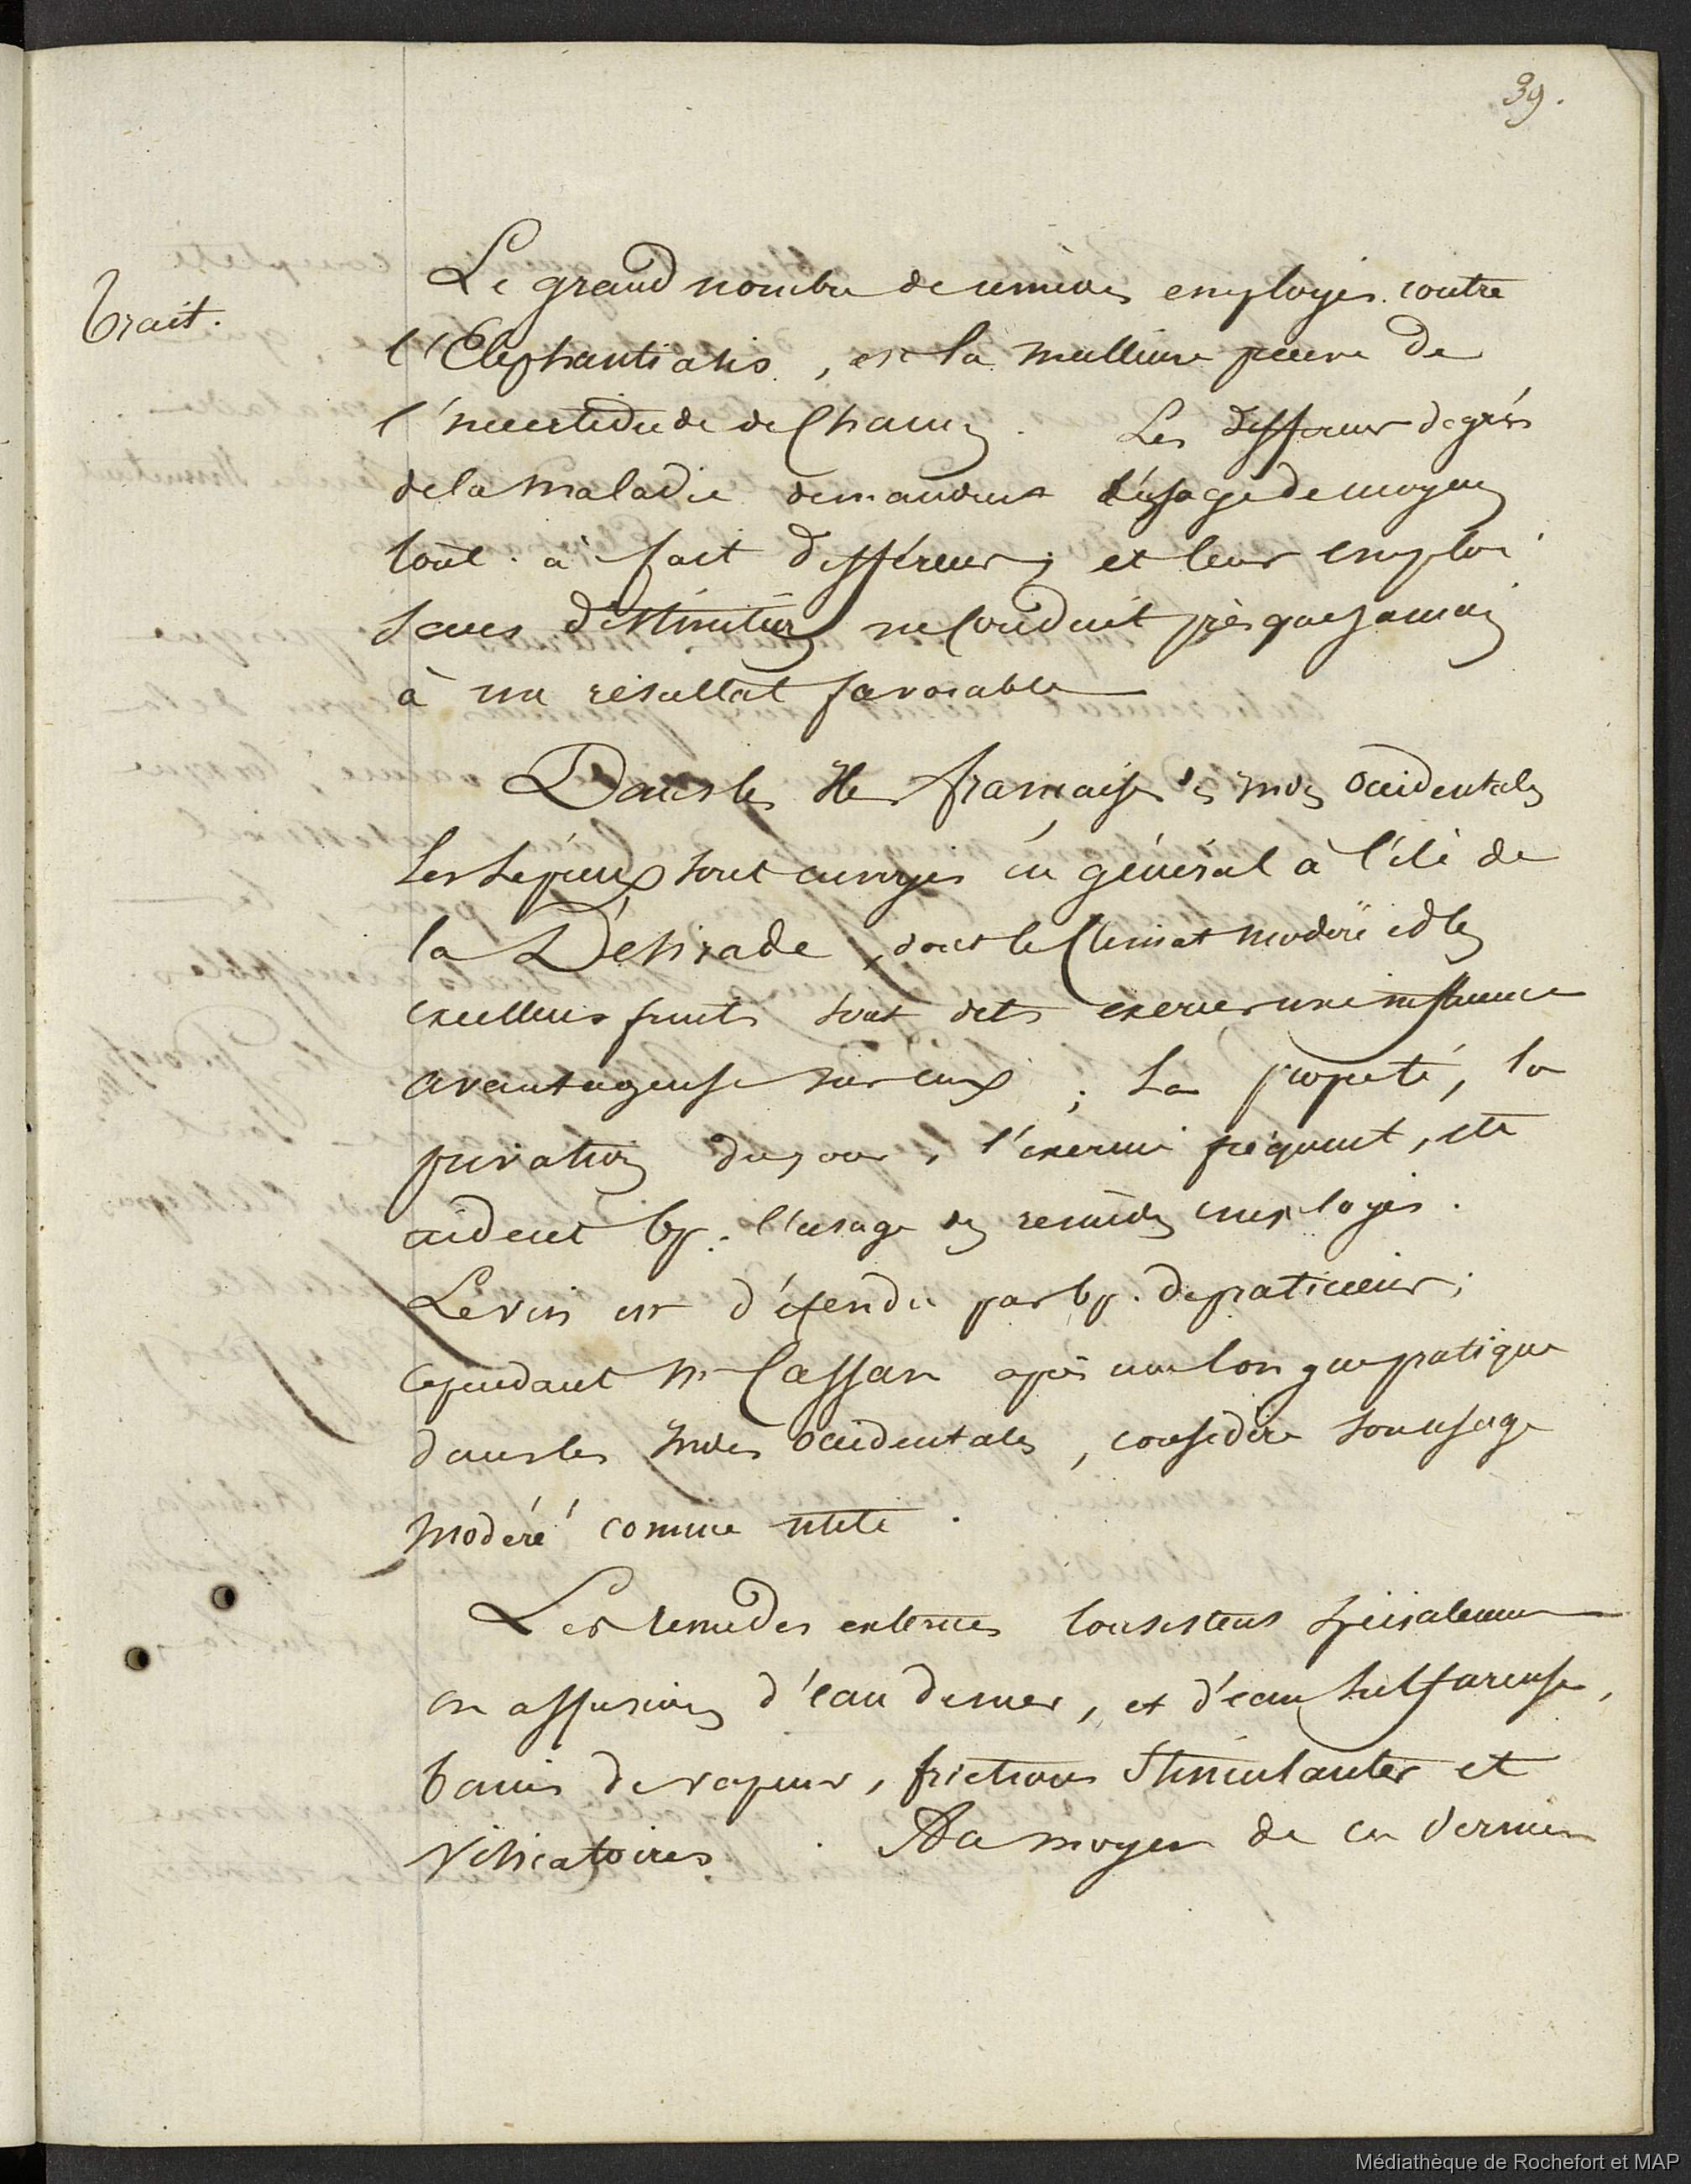 39.
Trait.
Le grand nombre de remèdes employés contre
l'Elephantiasis, est la meilleure preuve de
l'incertitude de chacun. Les differens degrés
de la maladie demandent l'usage de moyens
tout à fait différens, et leur emploi
sans distinction ne conduit presque jamais
à un résultat favorable
Dans les Iles françaises des Indes Occidentales
les Lépreux sont envoyés en général à l'ile de
la Désirade, dont le Climat modéré et les
excellens fruits sont dits exercer une influence
avantageuse sur eux; La propreté, la
privation du , l'exercice fréquent, etc
aident bp. l'usage des remèdes employés.
Le vin est défendu par bp. de praticiens;
cependant Mr Cassan après une longue pratique
dans les Indes Occidentales, considère son usage
modéré comme utile.
Les remèdes externes consistent spécialement
en affusions d'eau de mer, et d'eau sulfureuse,
bains de vapeur, frictions stimulantes et
vésicatoires. Au moyen de ces derniers
Médiathèque de Rochefort et MAP